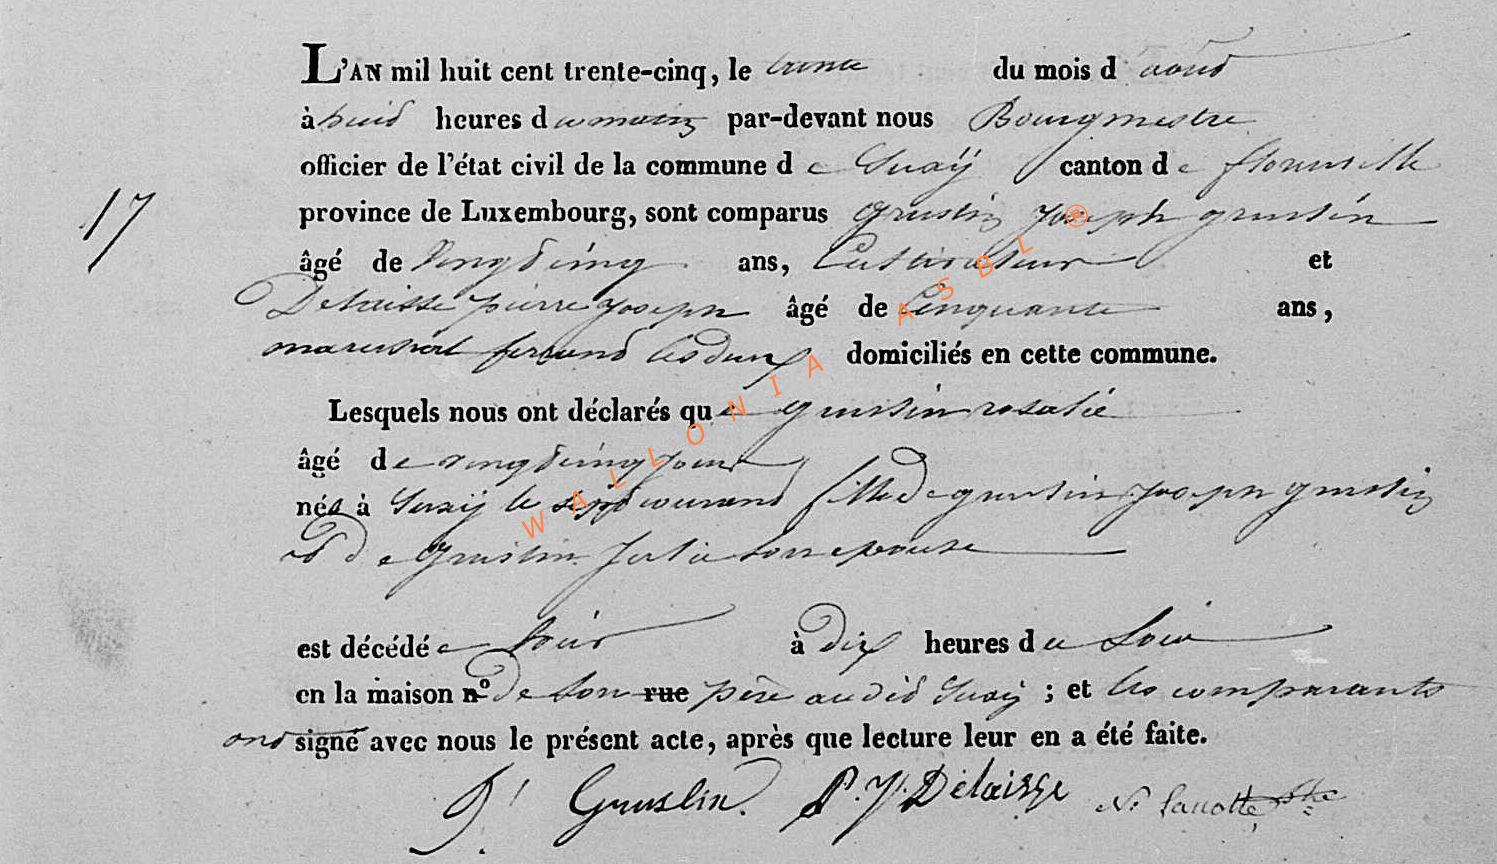 L'AN mil huit cent trente-cinq, le trente du mois d aoud
à huid heures du matin par-devant nous Bourgmestre
officier de l'état civil de la commune de Suxÿ canton de florenville
17
province de Luxembourg, sont comparus grustin Joseph grustin
âgé de vingdcinq ans, Cultivateur et
Delaisse pierre Joseph âgé de Cinquante ans,
marechal ferrand lesdeux domiciliés en cette commune.
Lesquels nous ont déclarés que grustin rosalie
âgé de vingdcinq jour
née à Suxÿ le sept courand fille de grustin Joseph grustin
et de grustin son epouse
est décédée hier à dix heures du Soir
en la maison nº de son rue père audid Suxÿ ; et les comparants
ond signé avec nous le présent acte, après que lecture leur en a été faite.
J. Grustin. P. J. Delaisse
WALLONIA ASBL ®